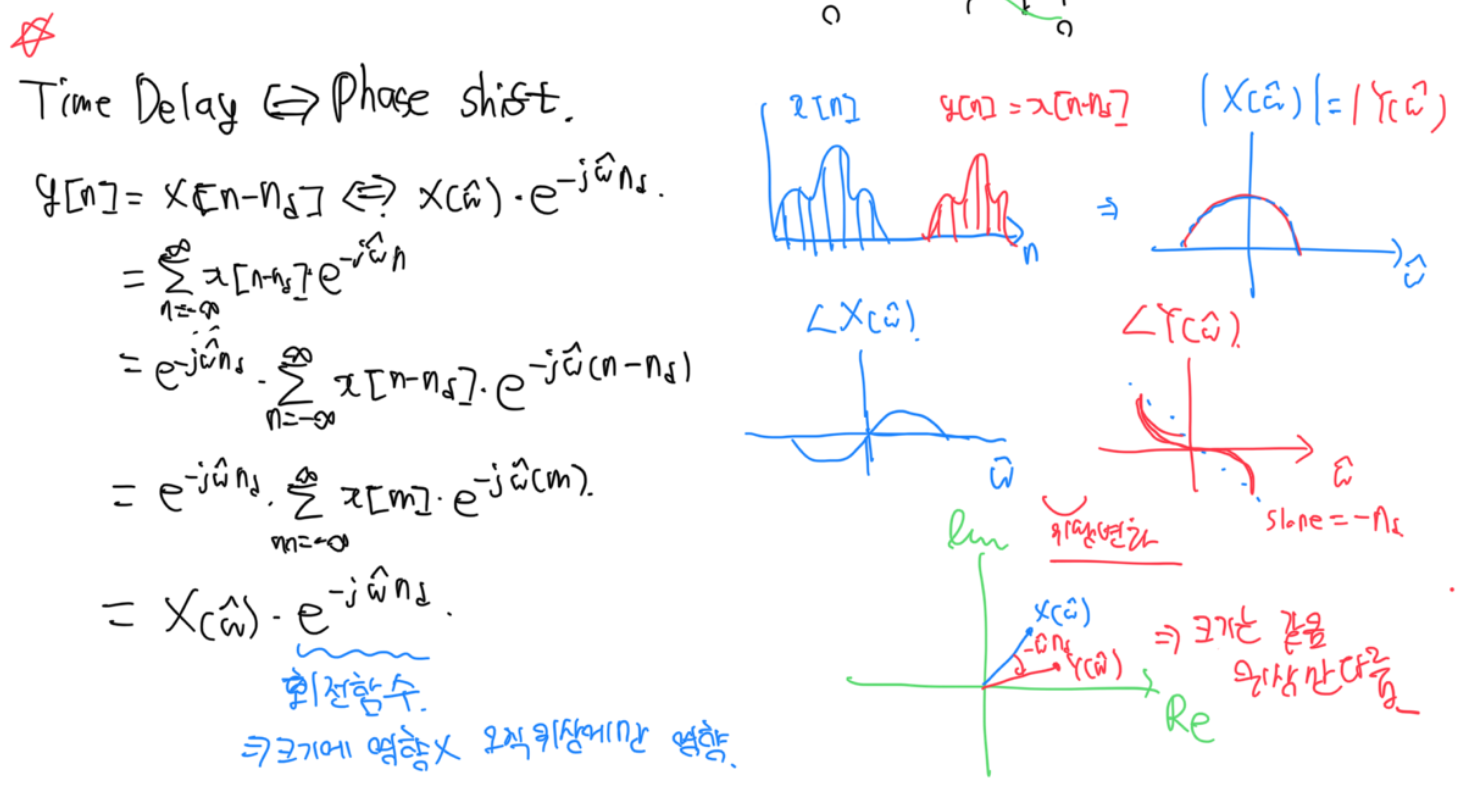 Time Delay ⇔ Phase shift.
y[n] = x[n-n_d] ⇔ X(ω̂)·e^{-jω̂n_d}.
= Σ_{n=-∞}^{∞} x[n-n_d]·e^{-jω̂n}
= e^{-jω̂n_d}·Σ_{n=-∞}^{∞} x[n-n_d]·e^{-jω̂(n-n_d)}
= e^{-jω̂n_d}·Σ_{m=-∞}^{∞} x[m]·e^{-jω̂(m)}.
= X(ω̂)·e^{-jω̂n_d}.
회전함수.
⇒ 크기에 영향X 오직 위상에만 영향.
x[n] y[n] = x[n-n_d]
n
⇒
|X(ω̂)| = |Y(ω̂)
ω̂
∠X(ω̂).
ω̂
∠Y(ω̂).
ω̂
slope = -n_d
위상변화
Im
X(ω̂)
-ω̂n_d
Y(ω̂)
Re
⇒ 크기는 같음
위상만 다름